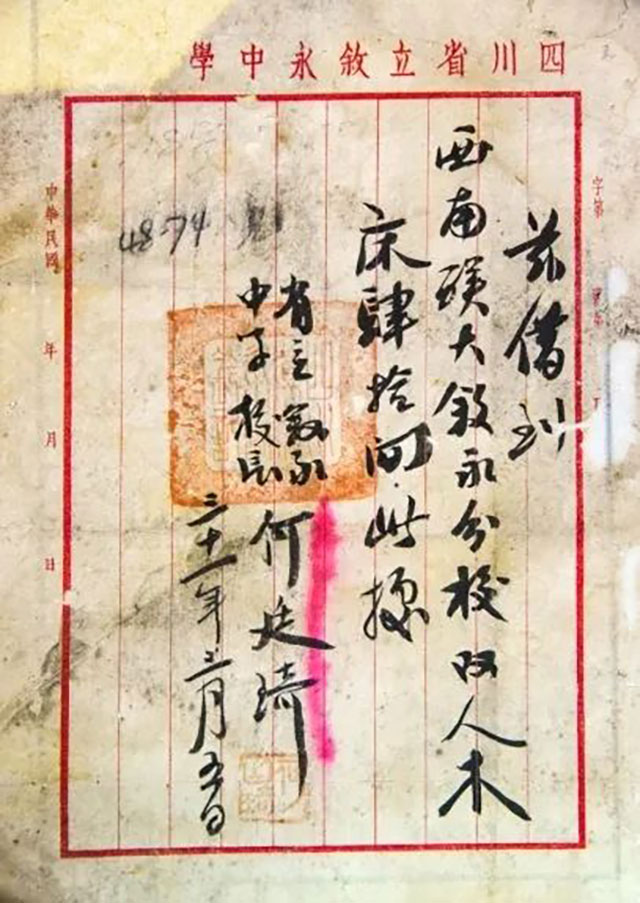 四川省立敘永中學
字第
兹借到
西南聯大敘永分校双人木
床肆拾间此據
省立敘永
中学校長
何廷琦
三十一年三月五日
4874
中華民國 年 月 日